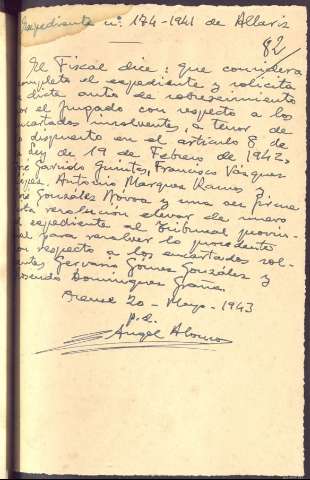 Expediente nº. 174-1941 de Allariz
82
El Fiscal dice: que considera
completo el expediente y solicita
dicte auto de sobreseimiento
por el Juzgado con respecto a los
encartados insolventes, a tenor de
lo dispuesto en el artículo 8 de
Ley de 19 de Febrero de 1942,
José Garrido Quintas, Francisco Vázquez
Antonio Marquez Ramos y
José González Nóvoa y una vez firme
esta resolución elevar de nuevo
el expediente al Tribunal provin-
cial para resolver lo procedente
con respecto a los encartados sol-
ventes Gervasio Gómez González y
Rosendo Domínguez
Orense 20 - Mayo - 1943
p.d.
Angel Alonso